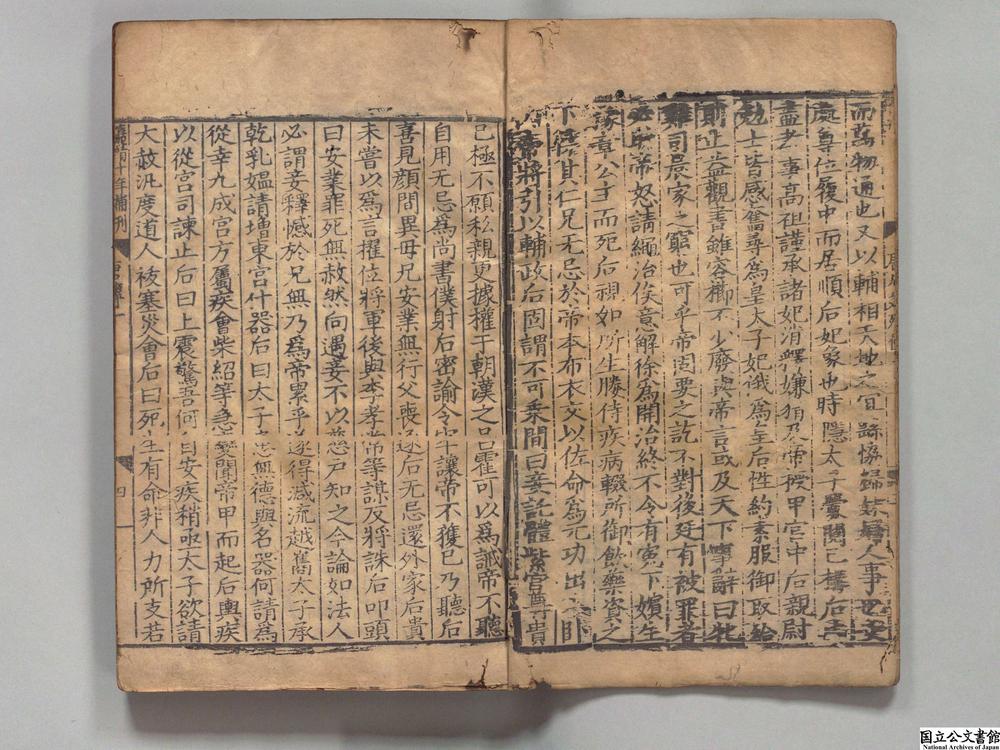 而萬物通也又以輔相天地之宜繇協歸妹婦人事也女
處尊位履中而居順后妃象也時隱太子釁鬩已構后內
盡孝事高祖謹承諸妃消釋嫌猜及帝授甲宮中后親尉
勉士皆感奮尋爲皇太子妃俄爲皇后性約素服御取給
則止益觀書雖容櫛不少廢與帝言或及天下事辭曰牝
雞司晨家之窮也可乎帝固要之訖不對後廷有被罪者
必助帝怒請繩治俟意解徐爲開治終不令有冤下嬪生
豫章公主而死后視如所生媵侍疾病輟所御飲藥資之
下懷其仁兄无忌於帝本布衣交以佐命爲元功出入臥
帝將引以輔政后固謂不可乘間曰妾託體紫宮尊貴
已極不願私親更據權于朝漢之呂霍可以爲誡帝不聽
自用无忌爲尚書僕射后密諭令牢讓帝不獲已乃聽后
喜見顏間異母兄安業無行父喪逐后无忌還外家后貴
未嘗以爲言擢位將軍後與李孝常等謀反將誅后叩頭
曰安業罪死無赦然向遇妾不以慈戶知之今論如法人
必謂妾釋憾於兄無乃爲帝累乎遂得減流越嶲太子承
乾乳媼請增東宮什器后曰太子患無德與名器何請爲
從幸九成宮方屬疾會柴紹等急變聞帝甲而起后輿疾
以從宮司諫止后曰上震驚吾何自安疾稍亟太子欲請
大赦汎度道人祓塞災會后曰死生有命非人力所支若
年補刊
四
国立公文書館
National Archives of Japan